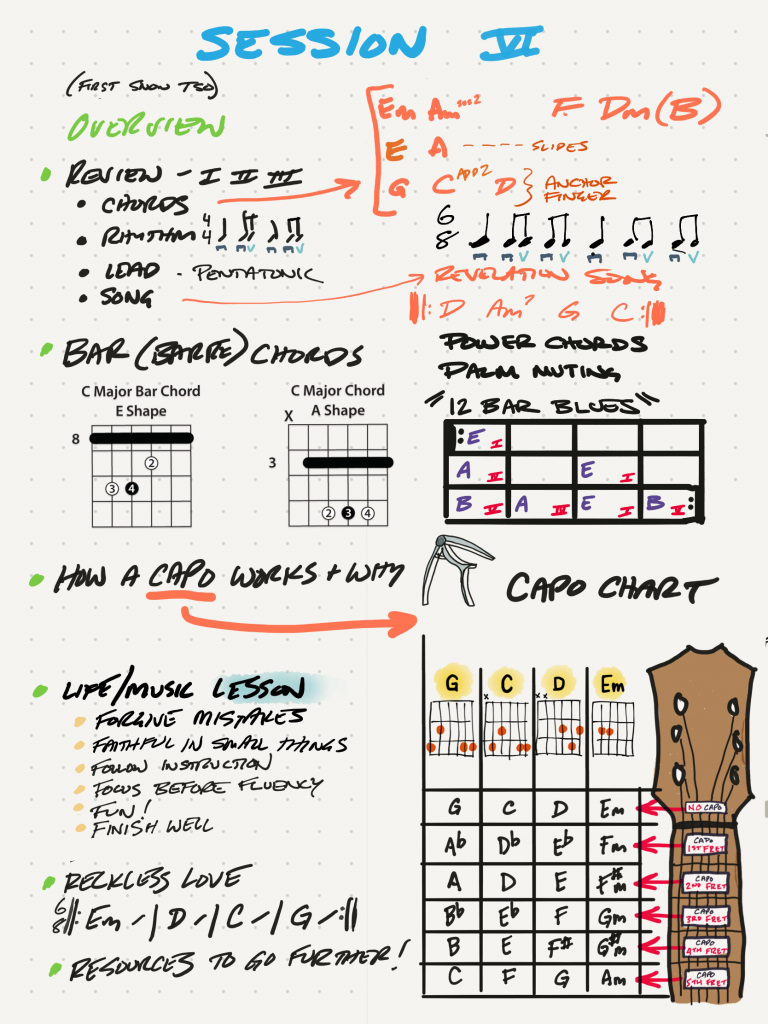 SESSION VI
(FIRST SNOW TSO)
OVERVIEW
REVIEW - I II III
• CHORDS
• RHYTHM 4/4
• LEAD - PENTATONIC
• SONG
Em Am sus2 F Dm (B)
E A ---- SLIDES
G C ADD2 D } ANCHOR FINGER
6/8
REVELATION SONG
||: D Am7 G C :||
BAR (BARRE) CHORDS
C Major Bar Chord
E Shape
8
2
3 4
C Major Chord
A Shape
X
3
2 3 4
POWER CHORDS
PALM MUTING
"12 BAR BLUES"
E I
A IV E I
B V A IV E I B V
HOW A CAPO WORKS + WHY
CAPO CHART
LIFE/MUSIC LESSON
FORGIVE MISTAKES
FAITHFUL IN SMALL THINGS
FOLLOW INSTRUCTION
FOCUS BEFORE FLUENCY
FUN!
FINISH WELL
RECKLESS LOVE
6/8 ||: Em / | D / | C / | G / :||
RESOURCES TO GO FURTHER!
G C D Em
x x x
G C D Em NO CAPO
Ab Db Eb Fm CAPO 1ST FRET
A D E F#m CAPO 2ND FRET
Bb Eb F Gm CAPO 3RD FRET
B E F# G#m CAPO 4TH FRET
C F G Am CAPO 5TH FRET